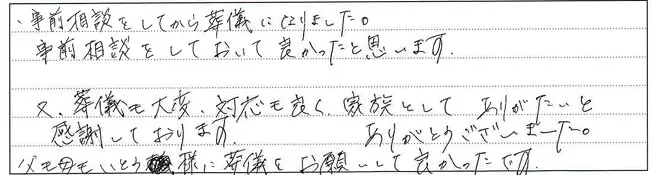 ・事前相談をしてから葬儀になりました。
事前相談をしておいて良かったと思います。
又、葬儀も大変、対応も良く、家族として ありがたいと
感謝しております。 ありがとうございました。
父も母もいとう様に葬儀をお願いして良かったです。